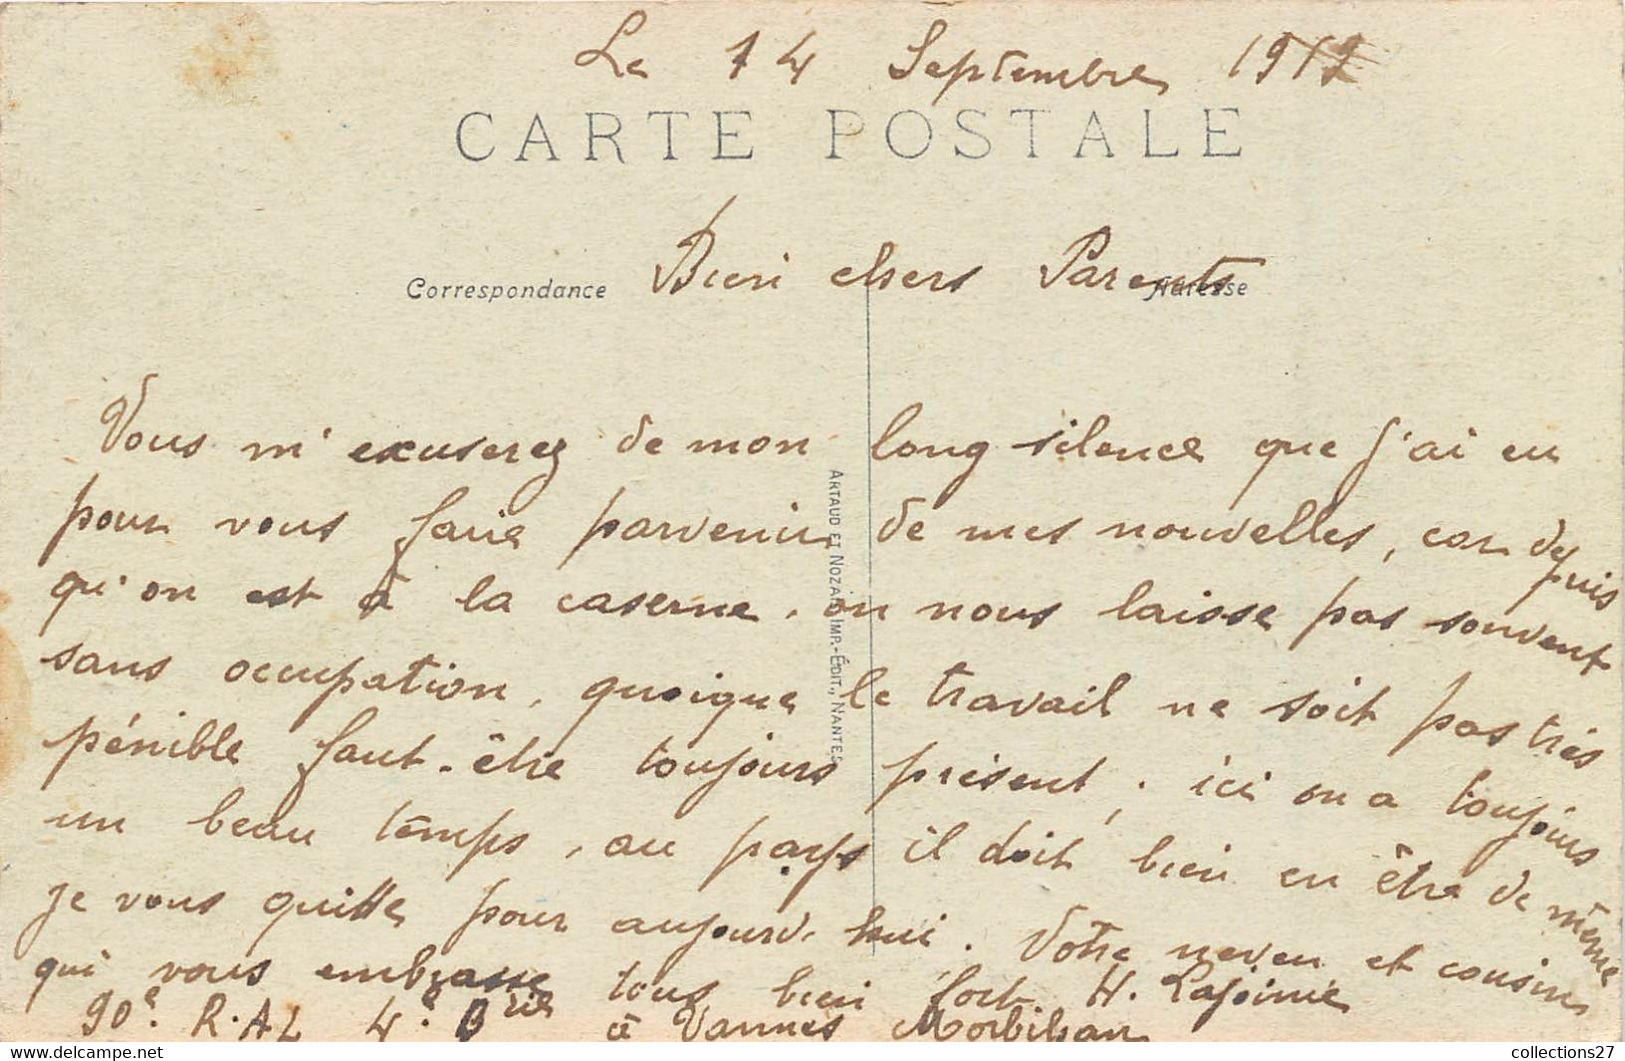 Le 14 Septembre 191
CARTE POSTALE
Correspondance
Adresse
Bien chers Parents
Vous m'excuserez de mon long silence que j'ai eu
pour vous faire parvenir de mes nouvelles, car depuis
qu'on est à la caserne, on nous laisse pas souvent
sans occupation, quoique le travail ne soit pas très
pénible faut-être toujours présent, ici on a toujours
un beau temps, au pays il doit bien en être de même
je vous quitte pour aujourd'hui. Votre neveu et cousin
qui vous embrasse tous bien fort H.
90e R.A.L 4e Brie à Vannes Morbihan
ARTAUD ET NOZAIS IMP.-ÉDIT., NANTES
collections27